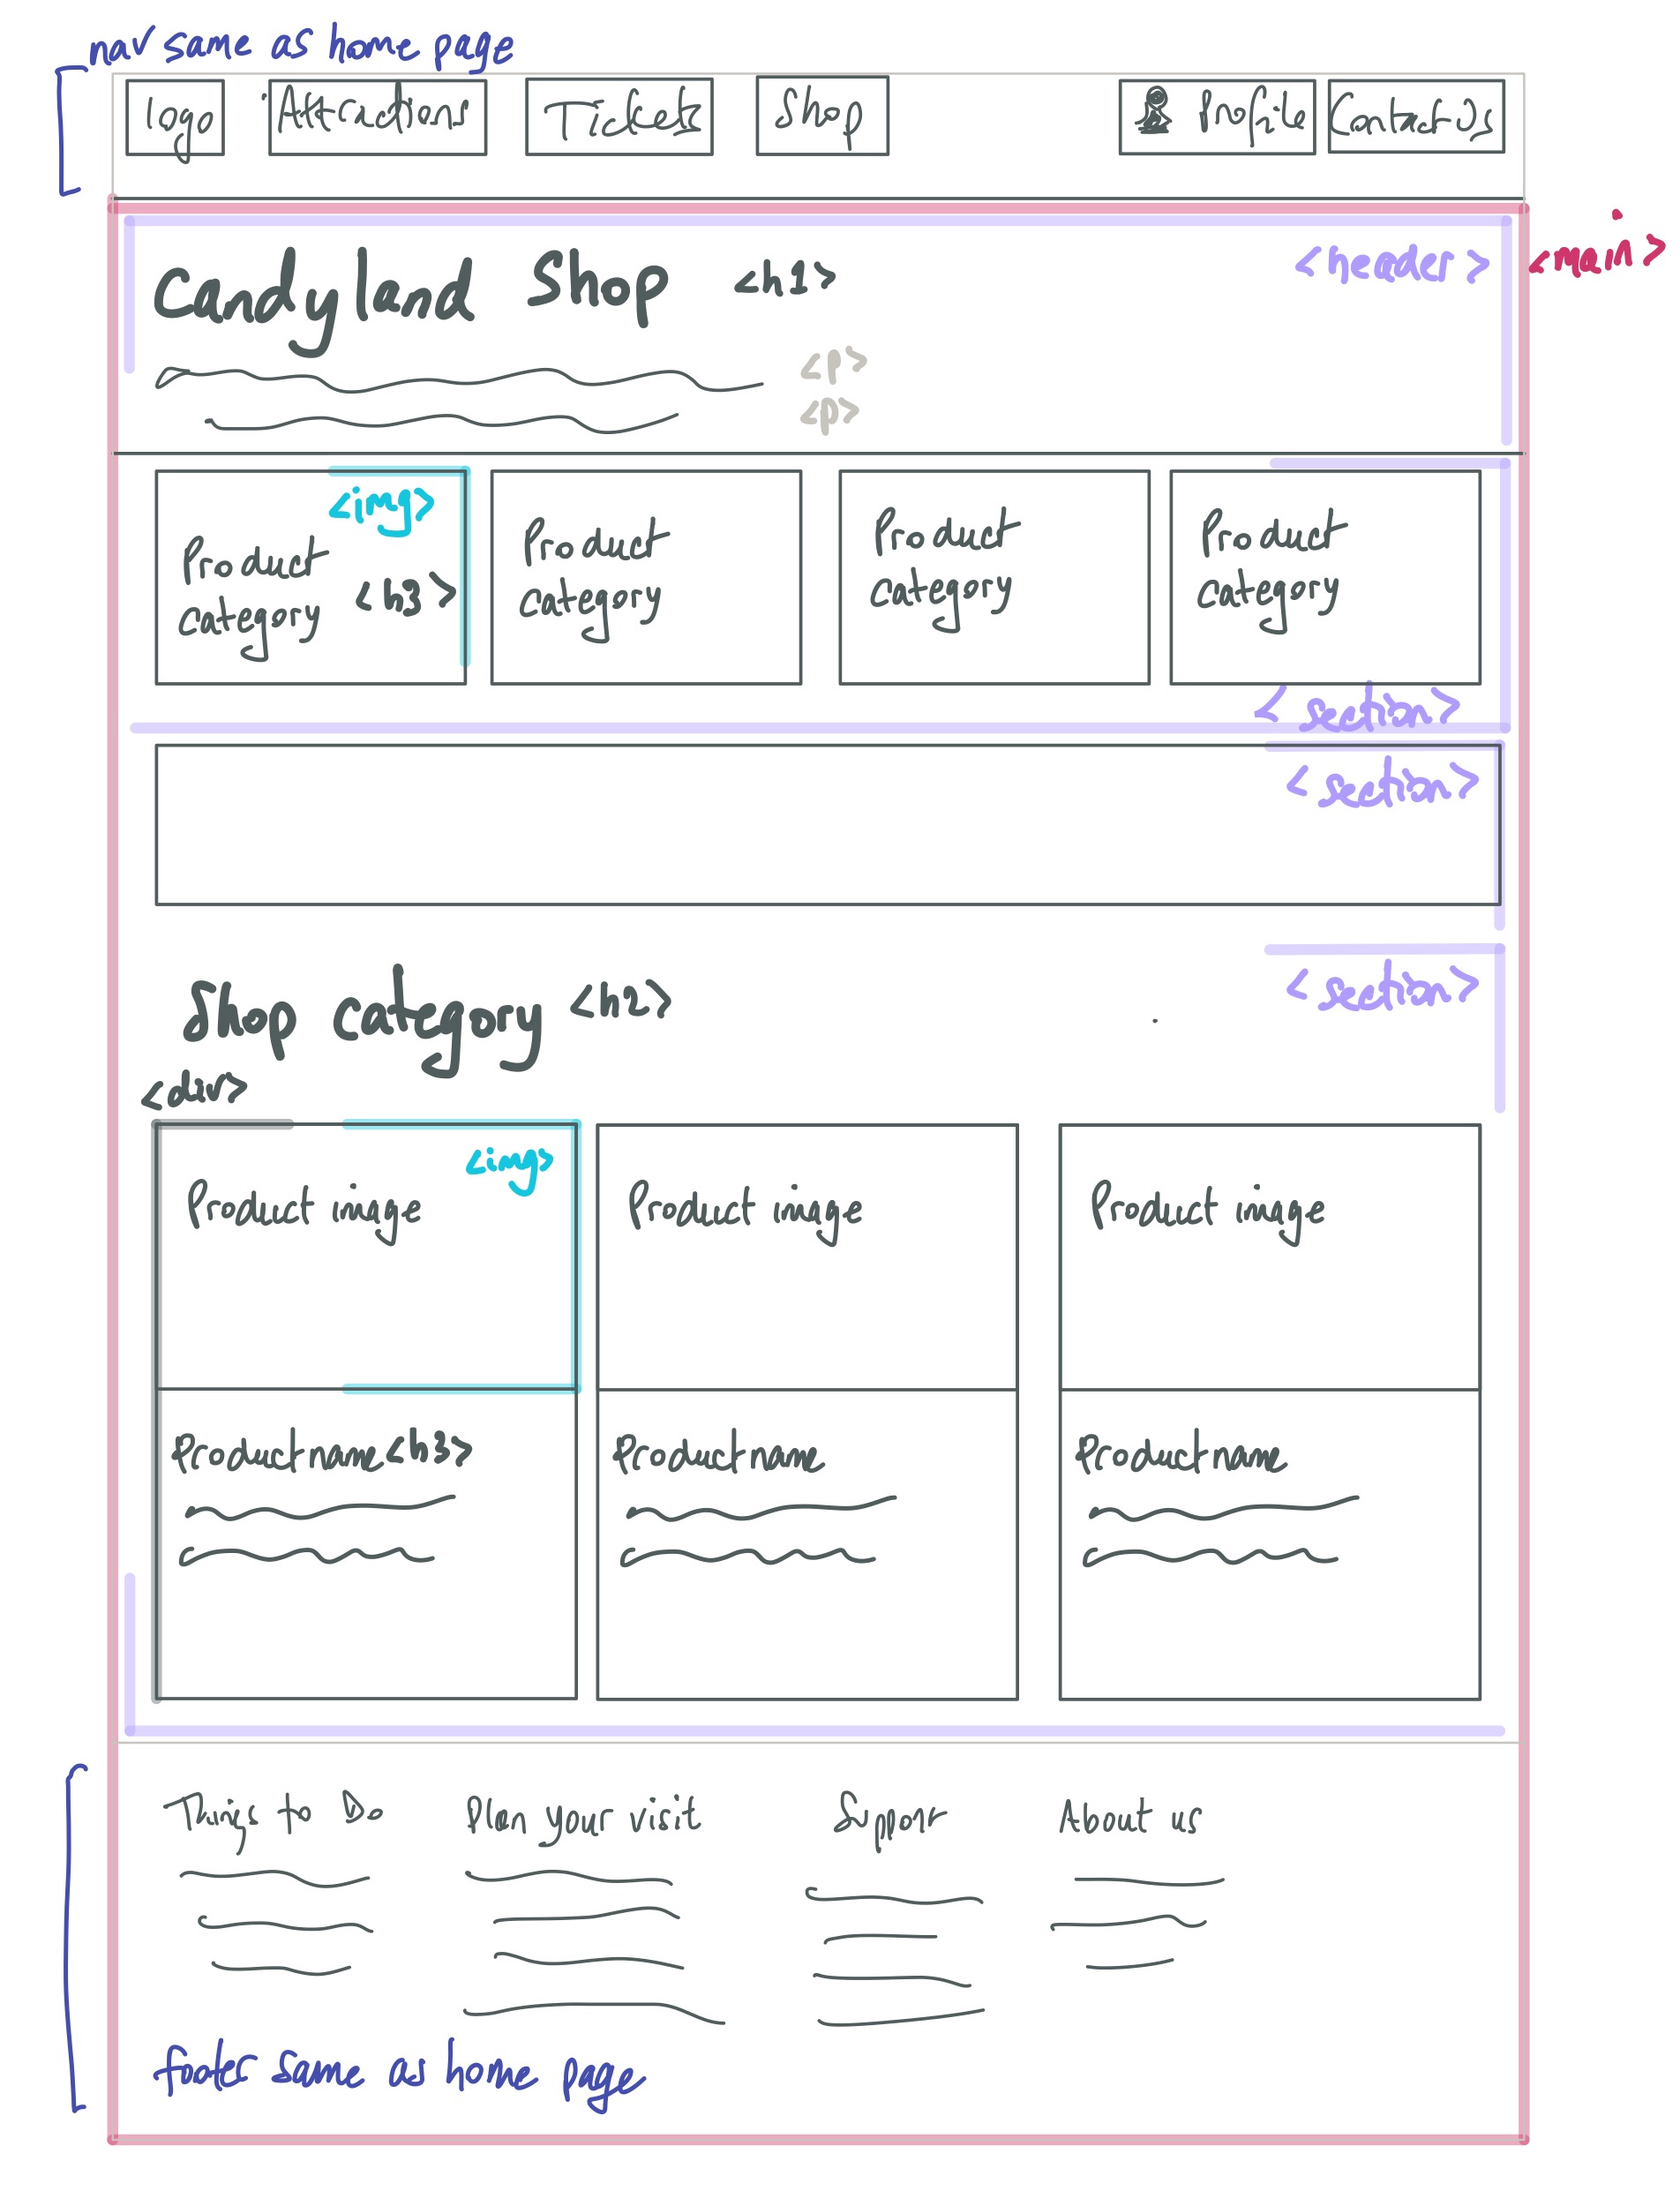 nav same as home page
logo Attractions Tickets Shop Profile Contact Us
Candyland Shop <h1> <header> <main>
<p>
<p>
<img>
Product category <h3>
Product category
Product category
Product category
<section>
<section>
Shop category <h2> <section>
<div>
Product image <img>
Product image
Product image
Product name <h3>
Product name
Product name
Things to Do
Plan your visit
Support
About us
footer same as home page